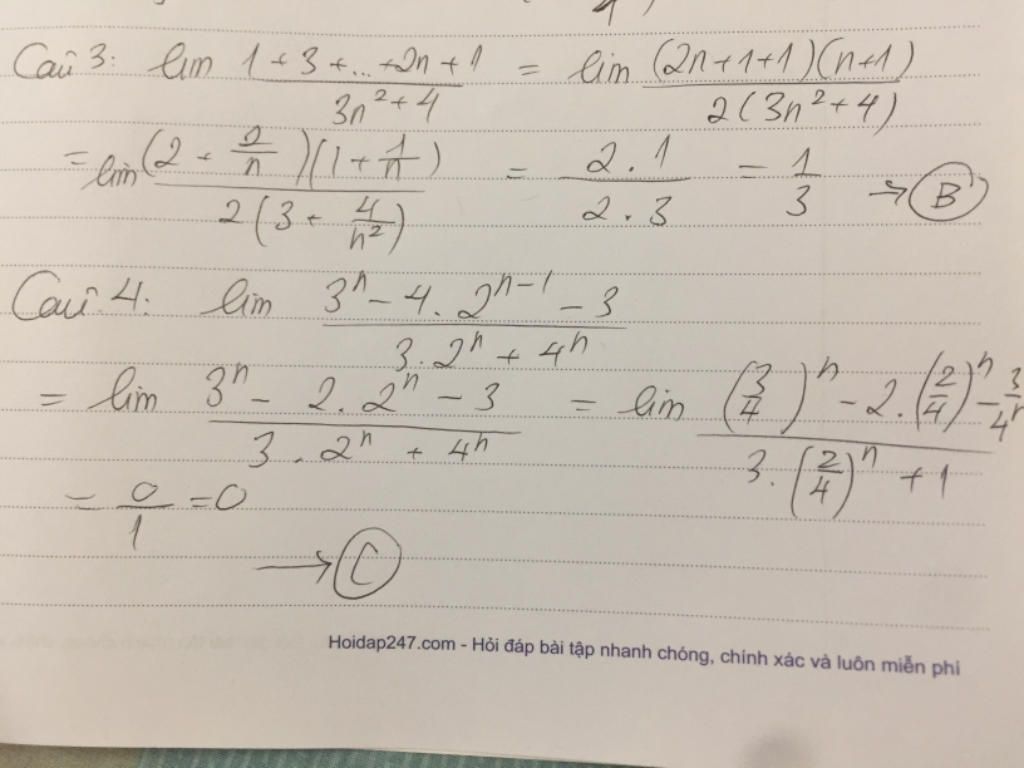 Câu 3: lim (1 + 3 + ... + 2n + 1)/(3n² + 4) = lim ((2n + 1 + 1)(n + 1))/(2(3n² + 4))
= lim ((2 + 2/n)(1 + 1/n))/(2(3 + 4/n²)) = (2 . 1)/(2 . 3) = 1/3 → B
Câu 4: lim (3ⁿ - 4 . 2ⁿ⁻¹ - 3)/(3 . 2ⁿ + 4ⁿ)
= lim (3ⁿ - 2 . 2ⁿ - 3)/(3 . 2ⁿ + 4ⁿ) = lim ((3/4)ⁿ - 2 . (2/4)ⁿ - 3/4ⁿ)/(3 . (2/4)ⁿ + 1)
= 0/1 = 0
→ C
Hoidap247.com - Hỏi đáp bài tập nhanh chóng, chính xác và luôn miễn phí